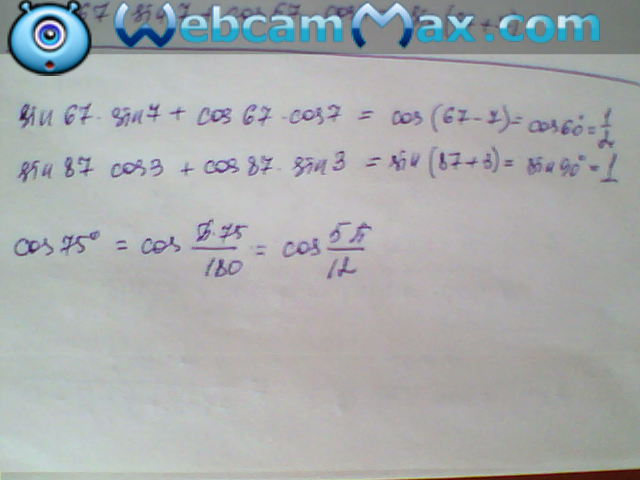 WebcamMax.com
sin 67 · sin 7 + cos 67 · cos 7 = cos (67 - 7) = cos 60° = 1/2
sin 87 cos 3 + cos 87 · sin 3 = sin (87 + 3) = sin 90° = 1
cos 75° = cos π·75/180 = cos 5π/12